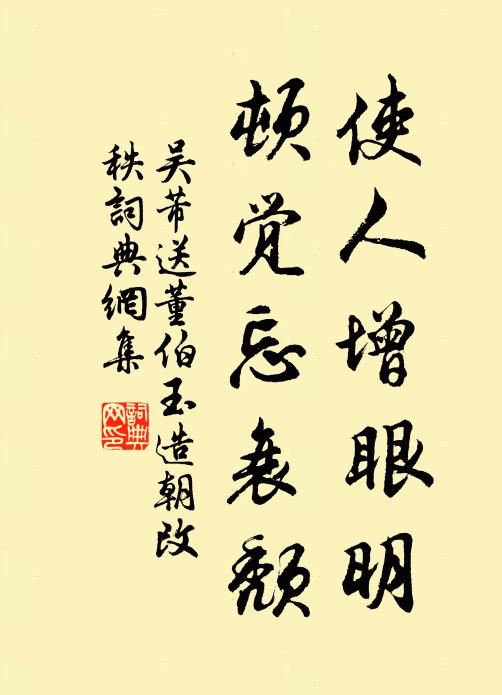 使人增眼明
顿觉忘衰颓
吴芾送董伯玉造朝改
秩詞典網集
詞典网印